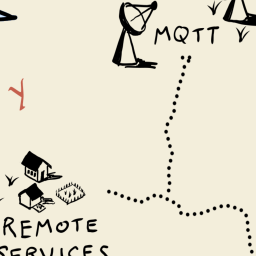 MQTT
REMOTE
SERVICES